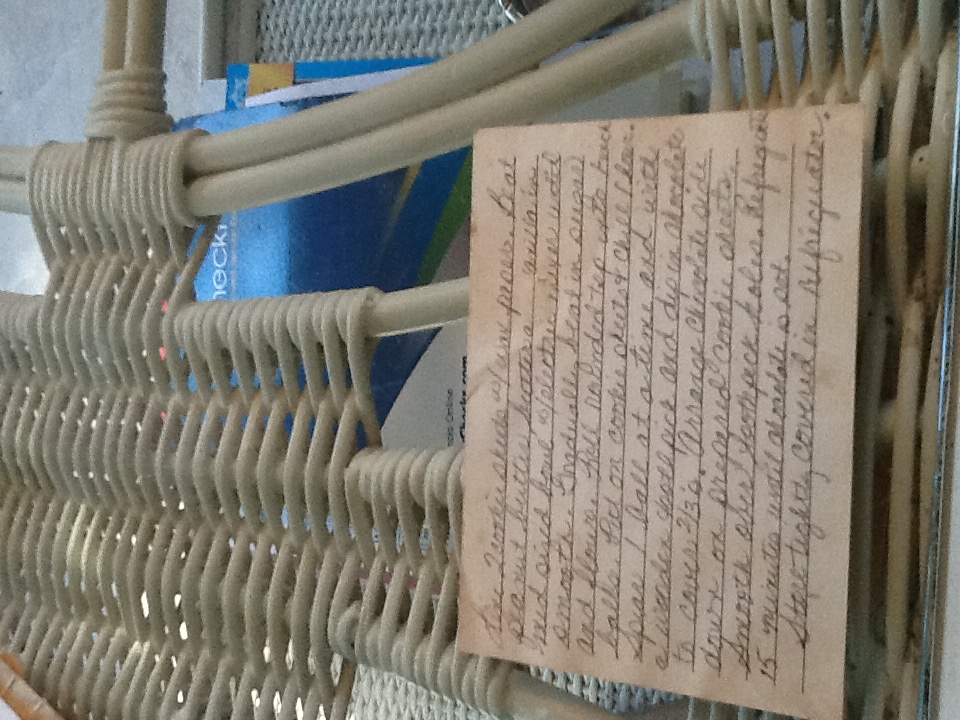 Line cookie sheets w/wax paper. Beat
peanut butter & butter mixer in
med sized bowl w/electric mixer until
smooth. Gradually beat in sugar
and flour. Roll rounded tsp into
balls. Put on cookie sheets & chill 1 hour.
Spear 1 ball at a time and with
a wooden toothpick and dip in chocolate
to cover 2/3s. Arrange chocolate side
down on prepared cookie sheets.
Smooth over toothpick holes. Refrigerate
15 minutes until chocolate is set.
Store tightly covered in refrigerator.